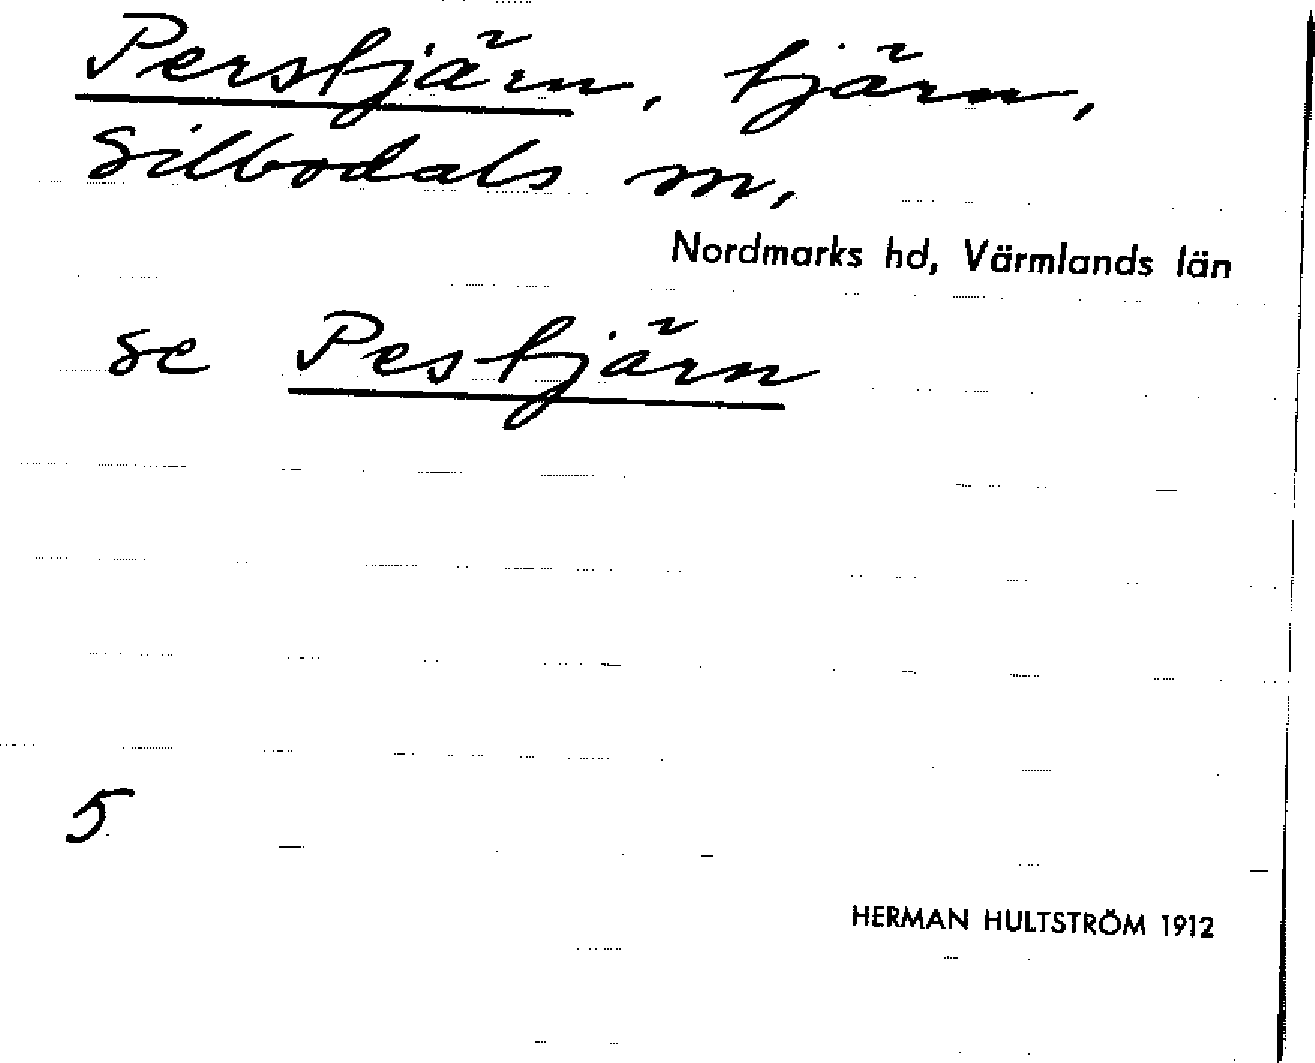 Perstjärn, tjärn,
Silbodals sn,
Nordmarks hd, Värmlands län
se Pestjärn
5
HERMAN HULTSTRÖM 1912